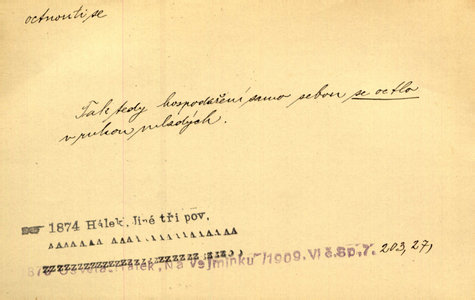 octnouti se
Tak tedy hospodaření samo sebou se octlo
v rukou mladých.
1874 Hálek, Jiné tři pov.
Hálek, Na Vejminku /1909, VI č.Sp,7. 203,27,